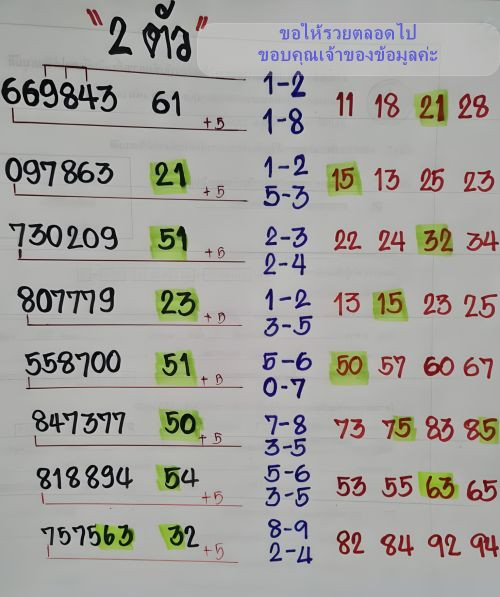 "2 ตัว"
ขอให้รวยตลอดไป
ขอบคุณเจ้าของข้อมูลค่ะ
669843 61 +5 1-2 1-8 11 18 21 28
097863 21 +5 1-2 5-3 15 13 25 23
730209 51 +5 2-3 2-4 22 24 32 34
807779 23 +5 1-2 3-5 13 15 23 25
558700 51 +5 5-6 0-7 50 57 60 67
847377 50 +5 7-8 3-5 73 75 83 85
818894 54 +5 5-6 3-5 53 55 63 65
757563 32 +5 8-9 2-4 82 84 92 94